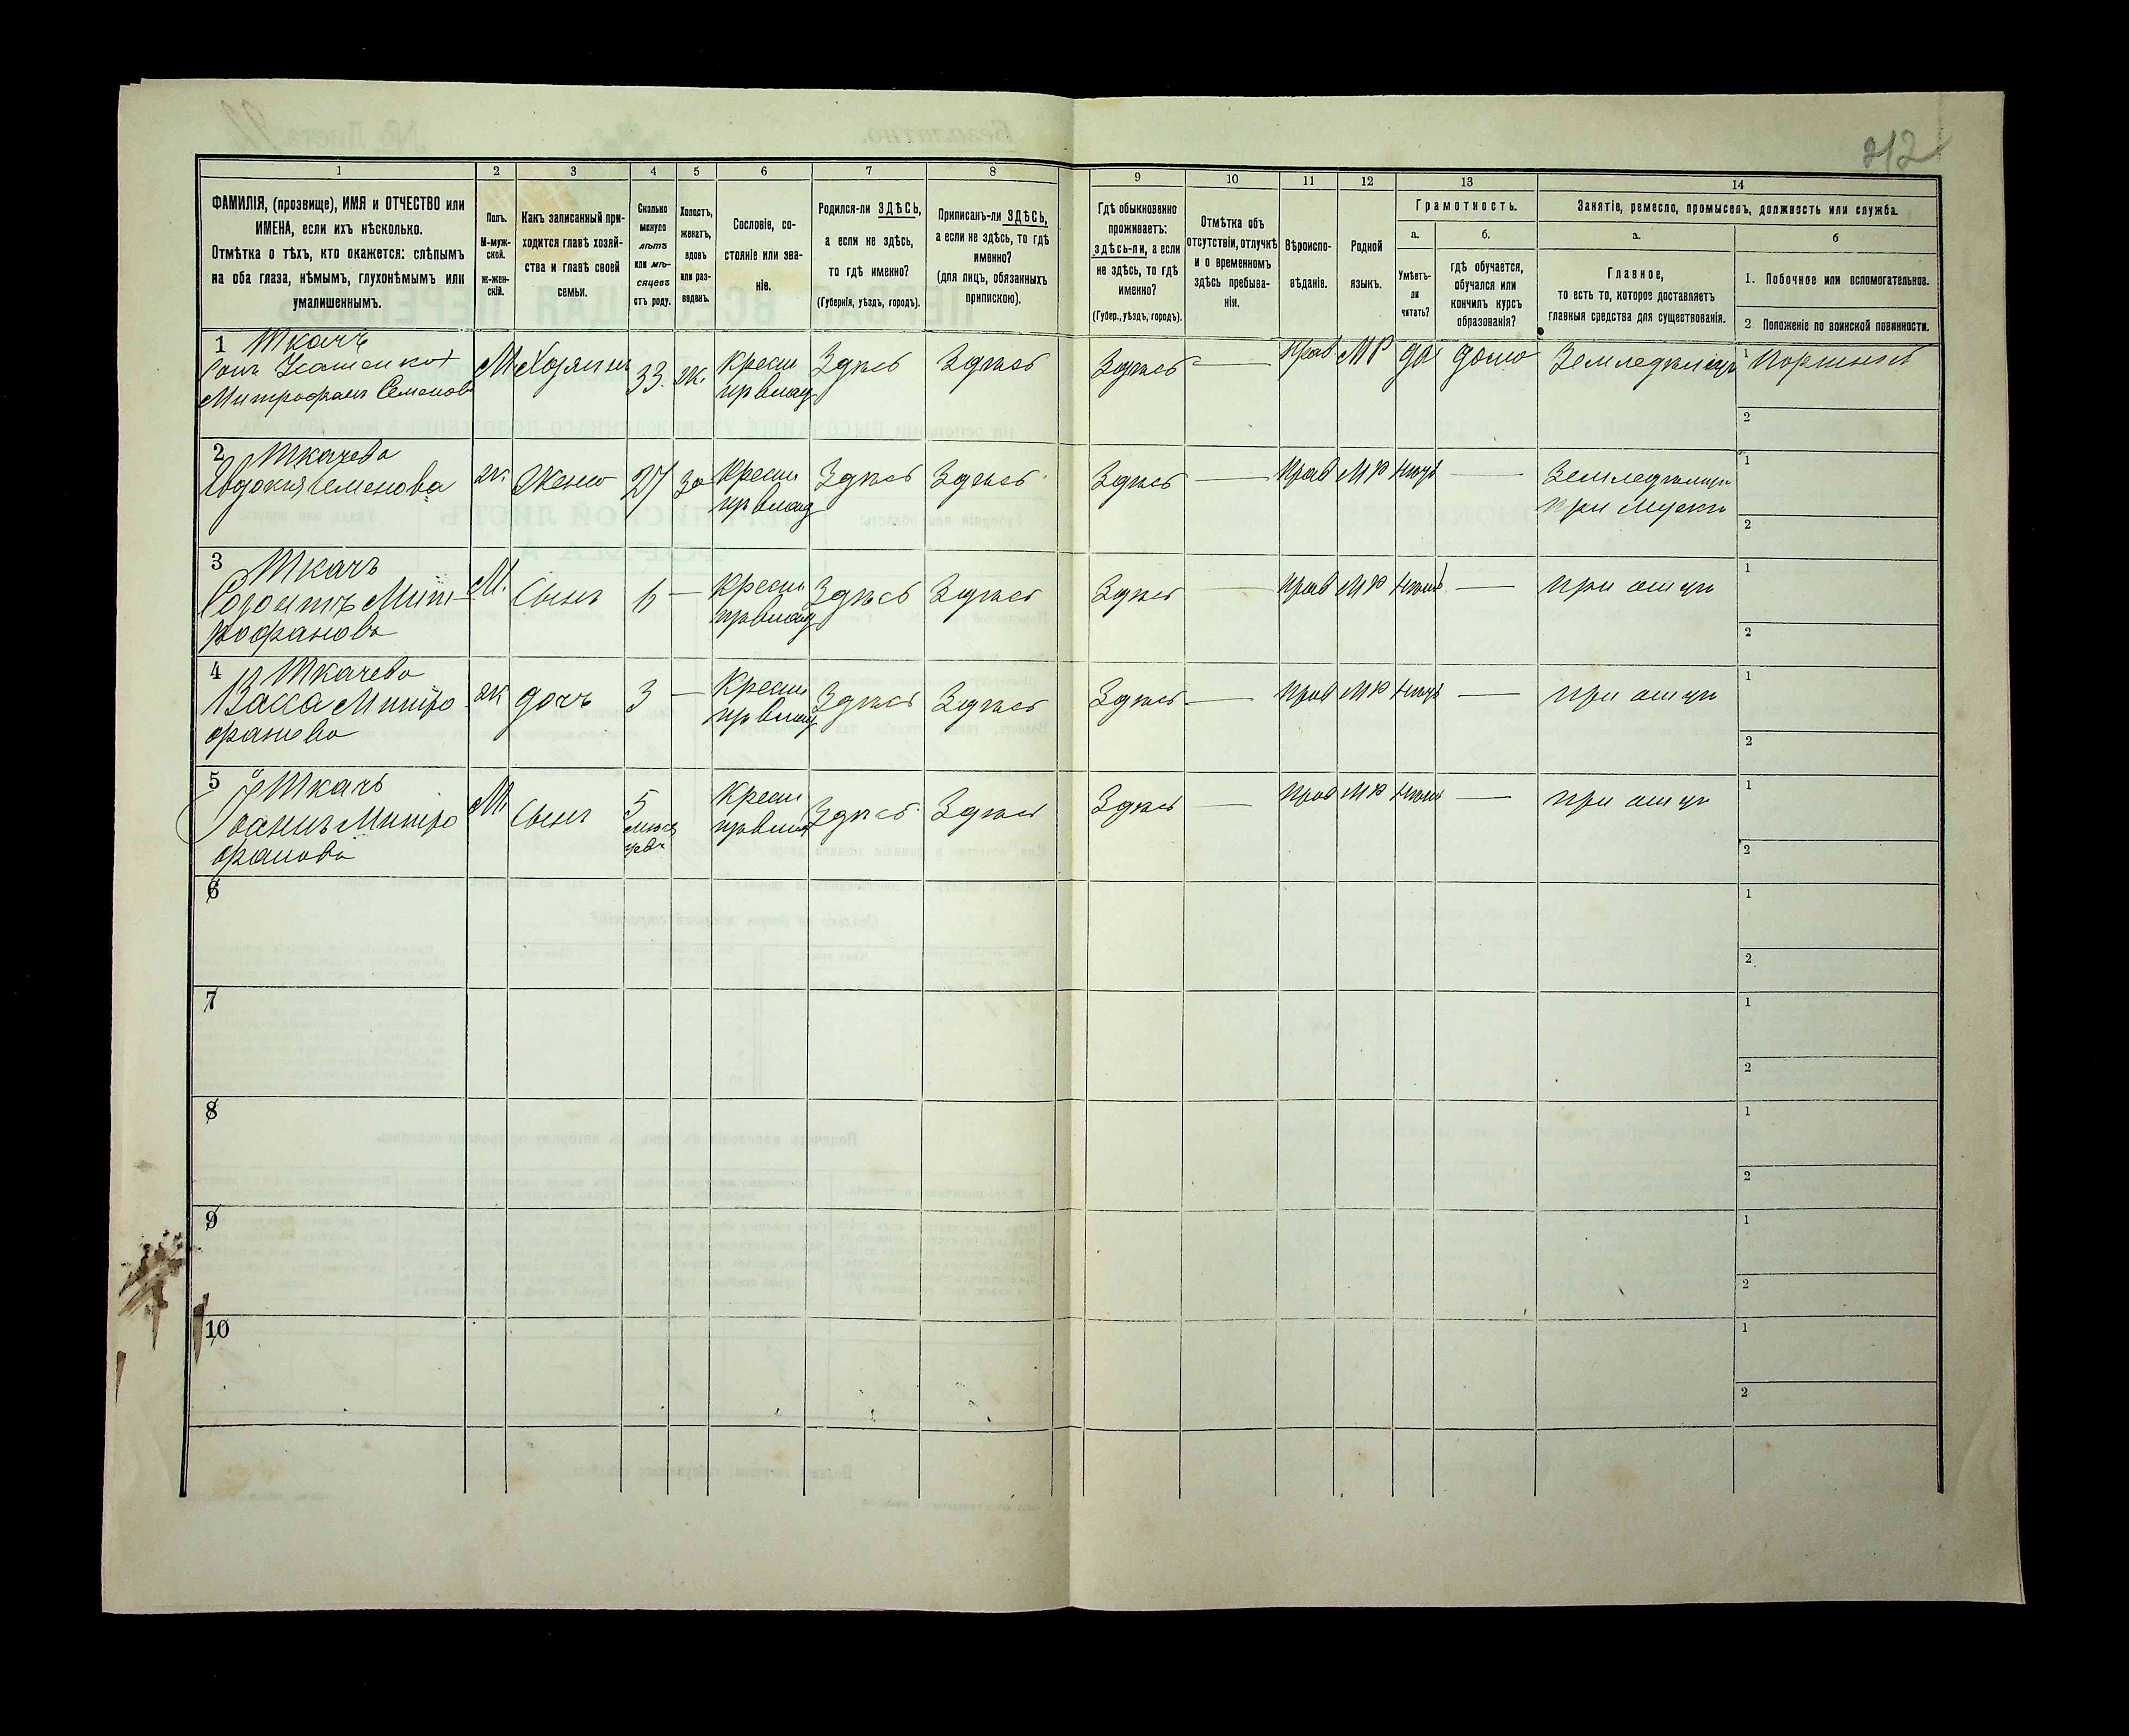 212
1 2 3 4 5 6 7 8 9 10 11 12 13 14
ФАМИЛІЯ, (прозвище), ИМЯ и ОТЧЕСТВО или
ИМЕНА, если ихъ нѣсколько.
Отмѣтка о тѣхъ, кто окажется: слѣпымъ
на оба глаза, нѣмымъ, глухонѣмымъ или
умалишеннымъ.
Полъ.
М-муж-
ской.
ж-жен-
скій.
Какъ записанный при-
ходится главѣ хозяй-
ства и главѣ своей
семьи.
Сколько
минуло
лѣтъ
или мѣ-
сяцевъ
отъ роду.
Холостъ,
женатъ,
вдовъ
или раз-
веденъ.
Сословіе, со-
стояніе или зва-
ніе.
Родился-ли ЗДѢСЬ,
а если не здѣсь,
то гдѣ именно?
(Губернія, уѣздъ, городъ).
Приписанъ-ли ЗДѢСЬ,
а если не здѣсь, то гдѣ
именно?
(для лицъ, обязанныхъ
припискою).
Гдѣ обыкновенно
проживаетъ:
здѣсь-ли, а если
не здѣсь, то гдѣ
именно?
(Губер., уѣздъ, городъ).
Отмѣтка объ
отсутствіи, отлучкѣ
и о временномъ
здѣсь пребыва-
ніи.
Вѣроиспо-
вѣданіе.
Родной
языкъ.
Грамотность.
а.
Умѣетъ-
ли
читать?
б.
гдѣ обучается,
обучался или
кончилъ курсъ
образованія?
Занятіе, ремесло, промыселъ, должность или служба.
а.
Главное,
то есть то, которое доставляетъ
главныя средства для существованія.
б
1. Побочное или вспомогательное.
2. Положеніе по воинской повинности.
1 Ткачъ
Митрофанъ Семеновъ
М Хозяинъ 33 ж. Крест Здѣсь Здѣсь Здѣсь — Прав МР да дома Земледѣлецъ 1 Портной
2
2 Ткачева
Евдокия Семенова
ж. Жена 27 За Крест Здѣсь Здѣсь Здѣсь — Прав МР нетъ — Земледѣлецъ 1
при мужѣ
2
3 Ткачъ
Мит-
рофановъ
М. Сынъ 6 — Крест Здѣсь Здѣсь Здѣсь — Прав МР нетъ — при отцѣ 1
2
4 Ткачева
Васса Митро
фанова
ж дочь 3 — Крест Здѣсь Здѣсь Здѣсь — Прав МР нетъ — при отцѣ 1
2
5 Ткачъ
Іоанъ Митро
фановъ
М. Сынъ 5 Крест Здѣсь Здѣсь Здѣсь — Прав МР нетъ — при отцѣ 1
2
6 1
2
7 1
2
8 1
2
9 1
2
10 1
2